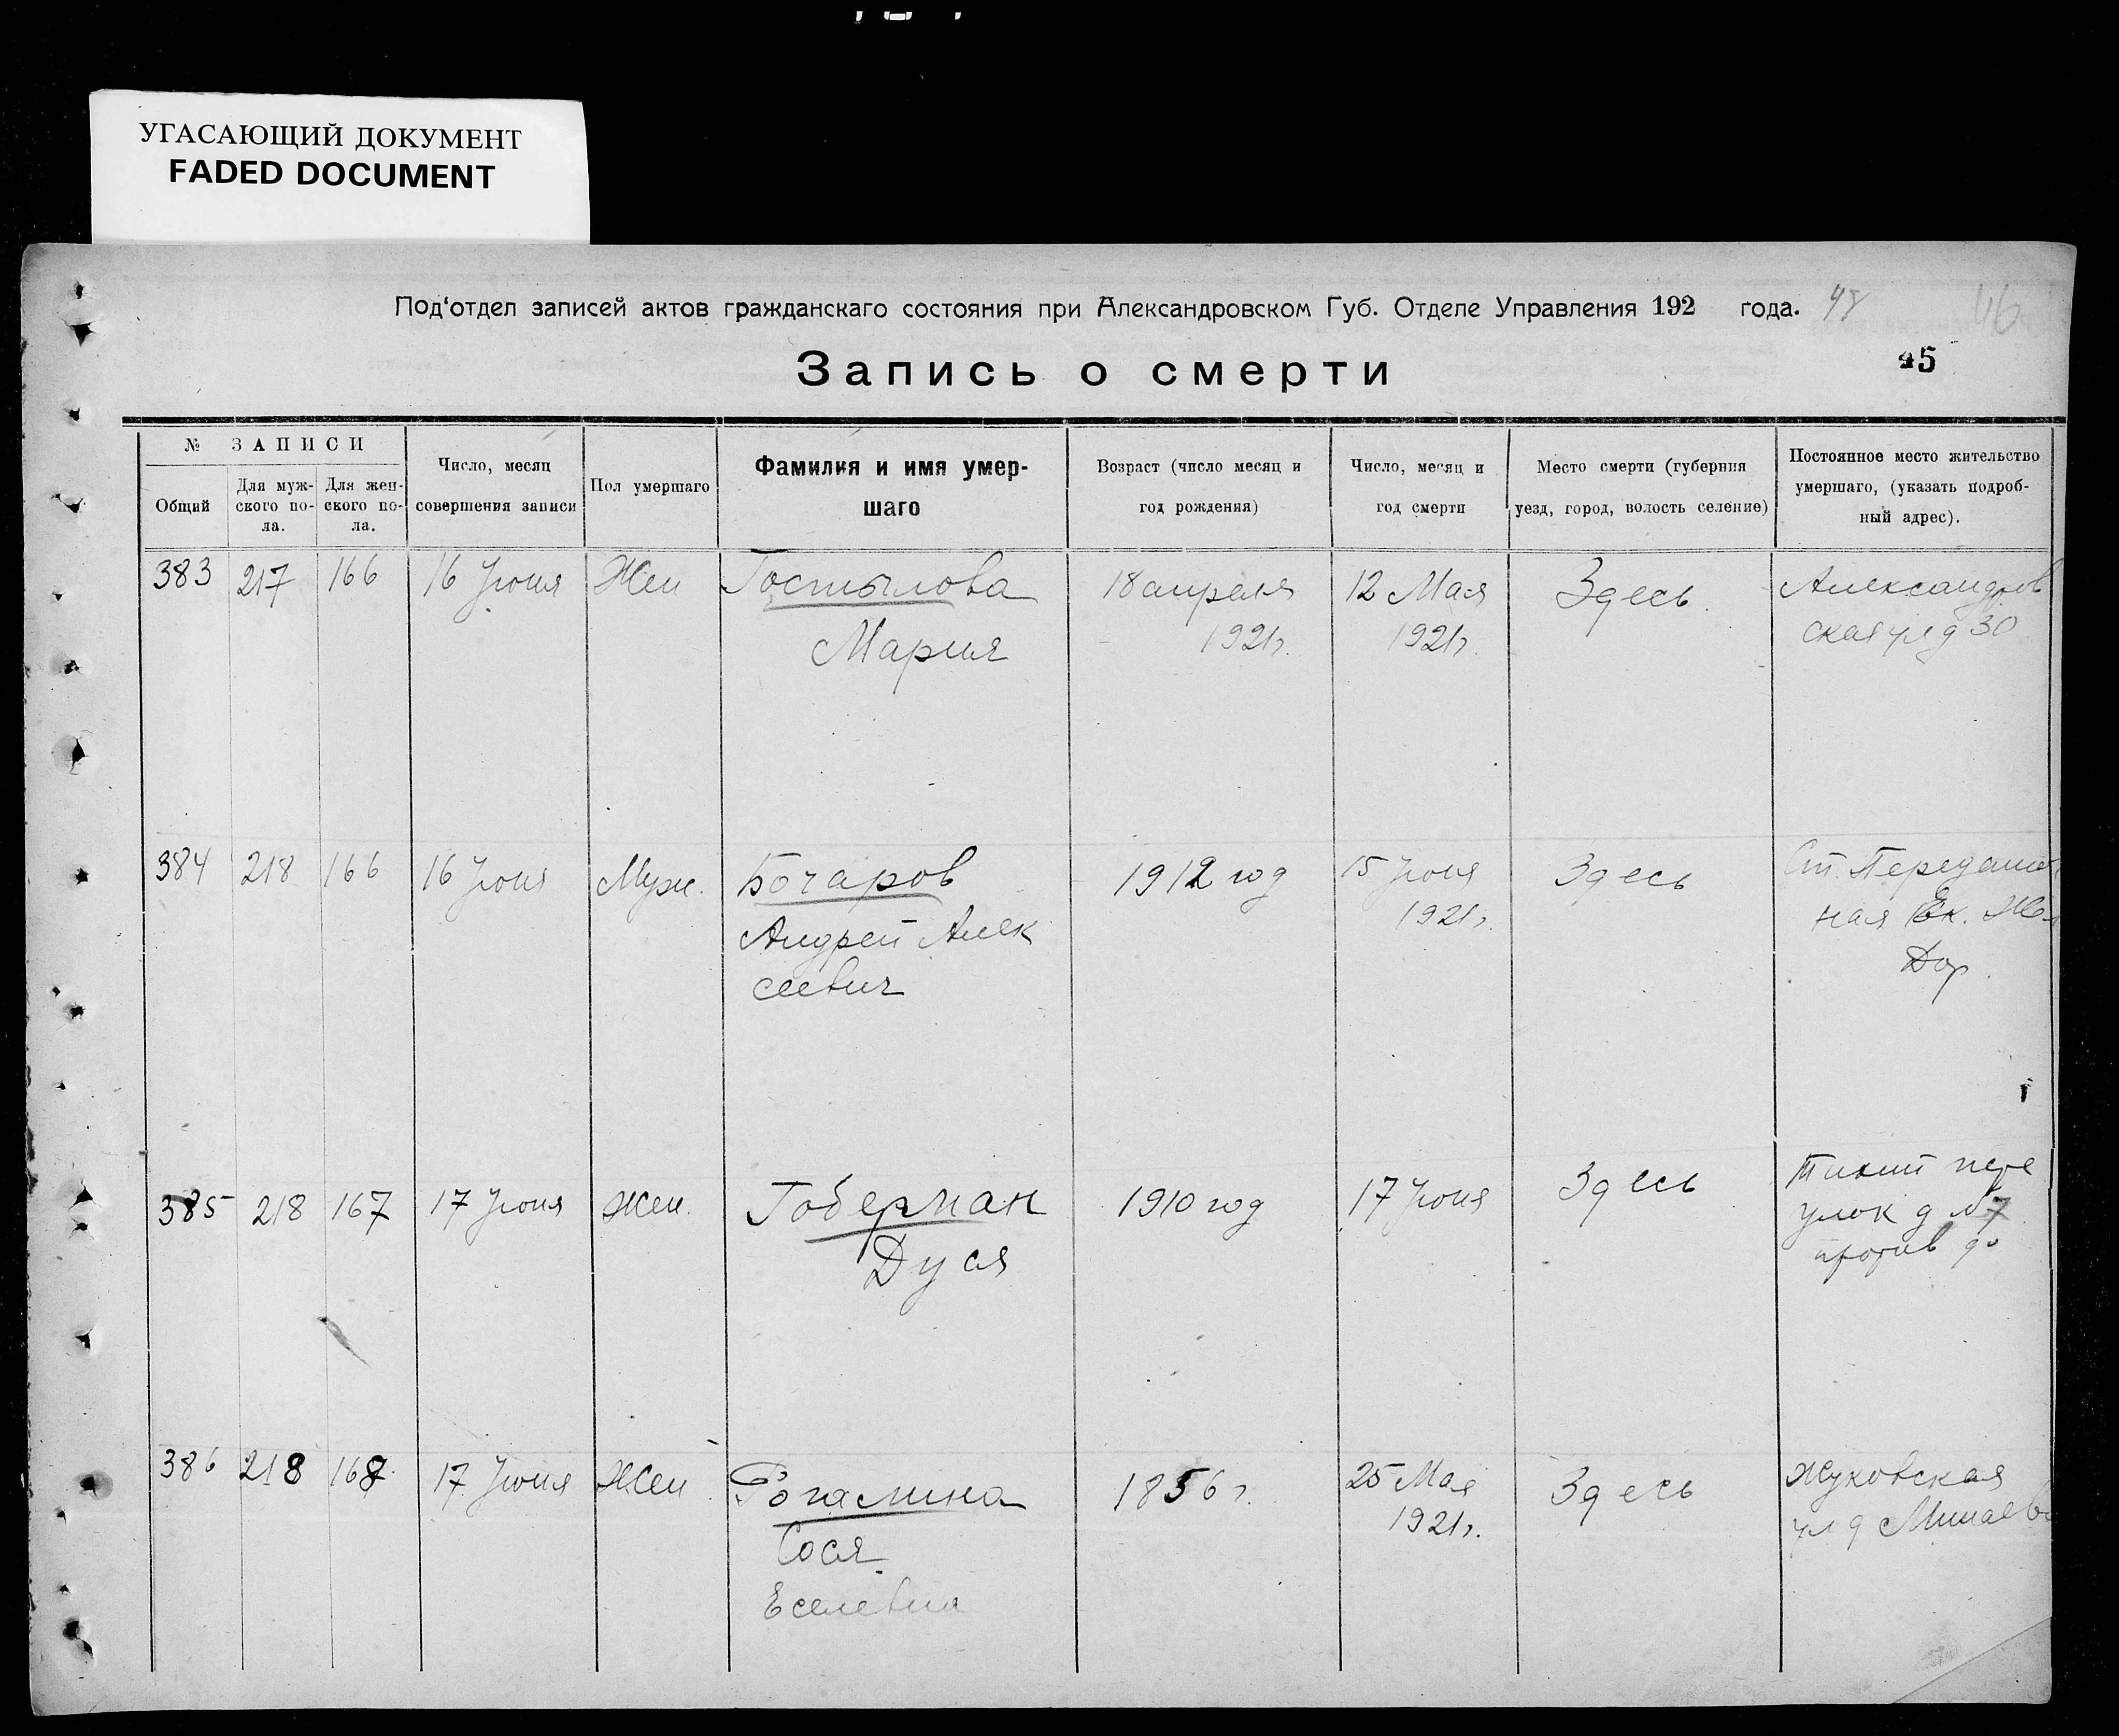 УГАСАЮЩИЙ ДОКУМЕНТ
FADED DOCUMENT
Под'отдел записей актов гражданскаго состояния при Александровском Губ. Отделе Управления 192 года. 48 46
Запись о смерти
45
№ ЗАПИСИ
Общий
Для муж-
ского по-
ла.
Для жен-
ского по-
ла.
Число, месяц
совершения записи
Пол умершаго
Фамилия и имя умер-
шаго
Возраст (число месяц и
год рождения)
Число, месяц и
год смерти
Место смерти (губерния
уезд, город, волость селение)
Постоянное место жительство
умершаго, (указать подроб-
ный адрес).
383 217 166 16 Июня Жен Гостылова 18 апреля 12 Мая Здесь Александров
Мария 1921г. 1921г. ская ул д 30
384 218 166 16 Июня Муж. Бочаров 1912 год 15 Июня Здесь Ст.
Андрей Алек 1921г. ная Ек. Жел
сеевич Дор.
385 218 167 17 Июня Жен. Гоберман 1910 год 17 Июня Здесь Тихий пере
Дуся улок д №7
против
386 218 168 17 Июня Жен. 1856 г. 25 Мая Здесь Жуковская
Сося 1921г. ул д
Еселевна